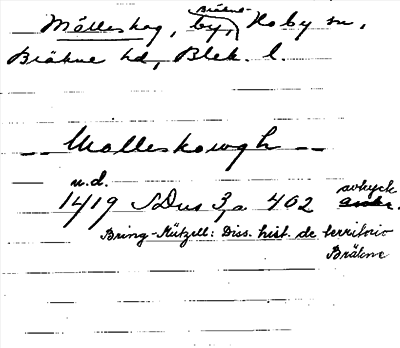 Mölleskog, by, Hoby sn,
Bräkne hd, Blek. l.
-- Molleskowgh --
u.d.
1419 SDns 3, a 402 avtryck
Bring-Kützell: Diss. hist. de territorio
Bräkne